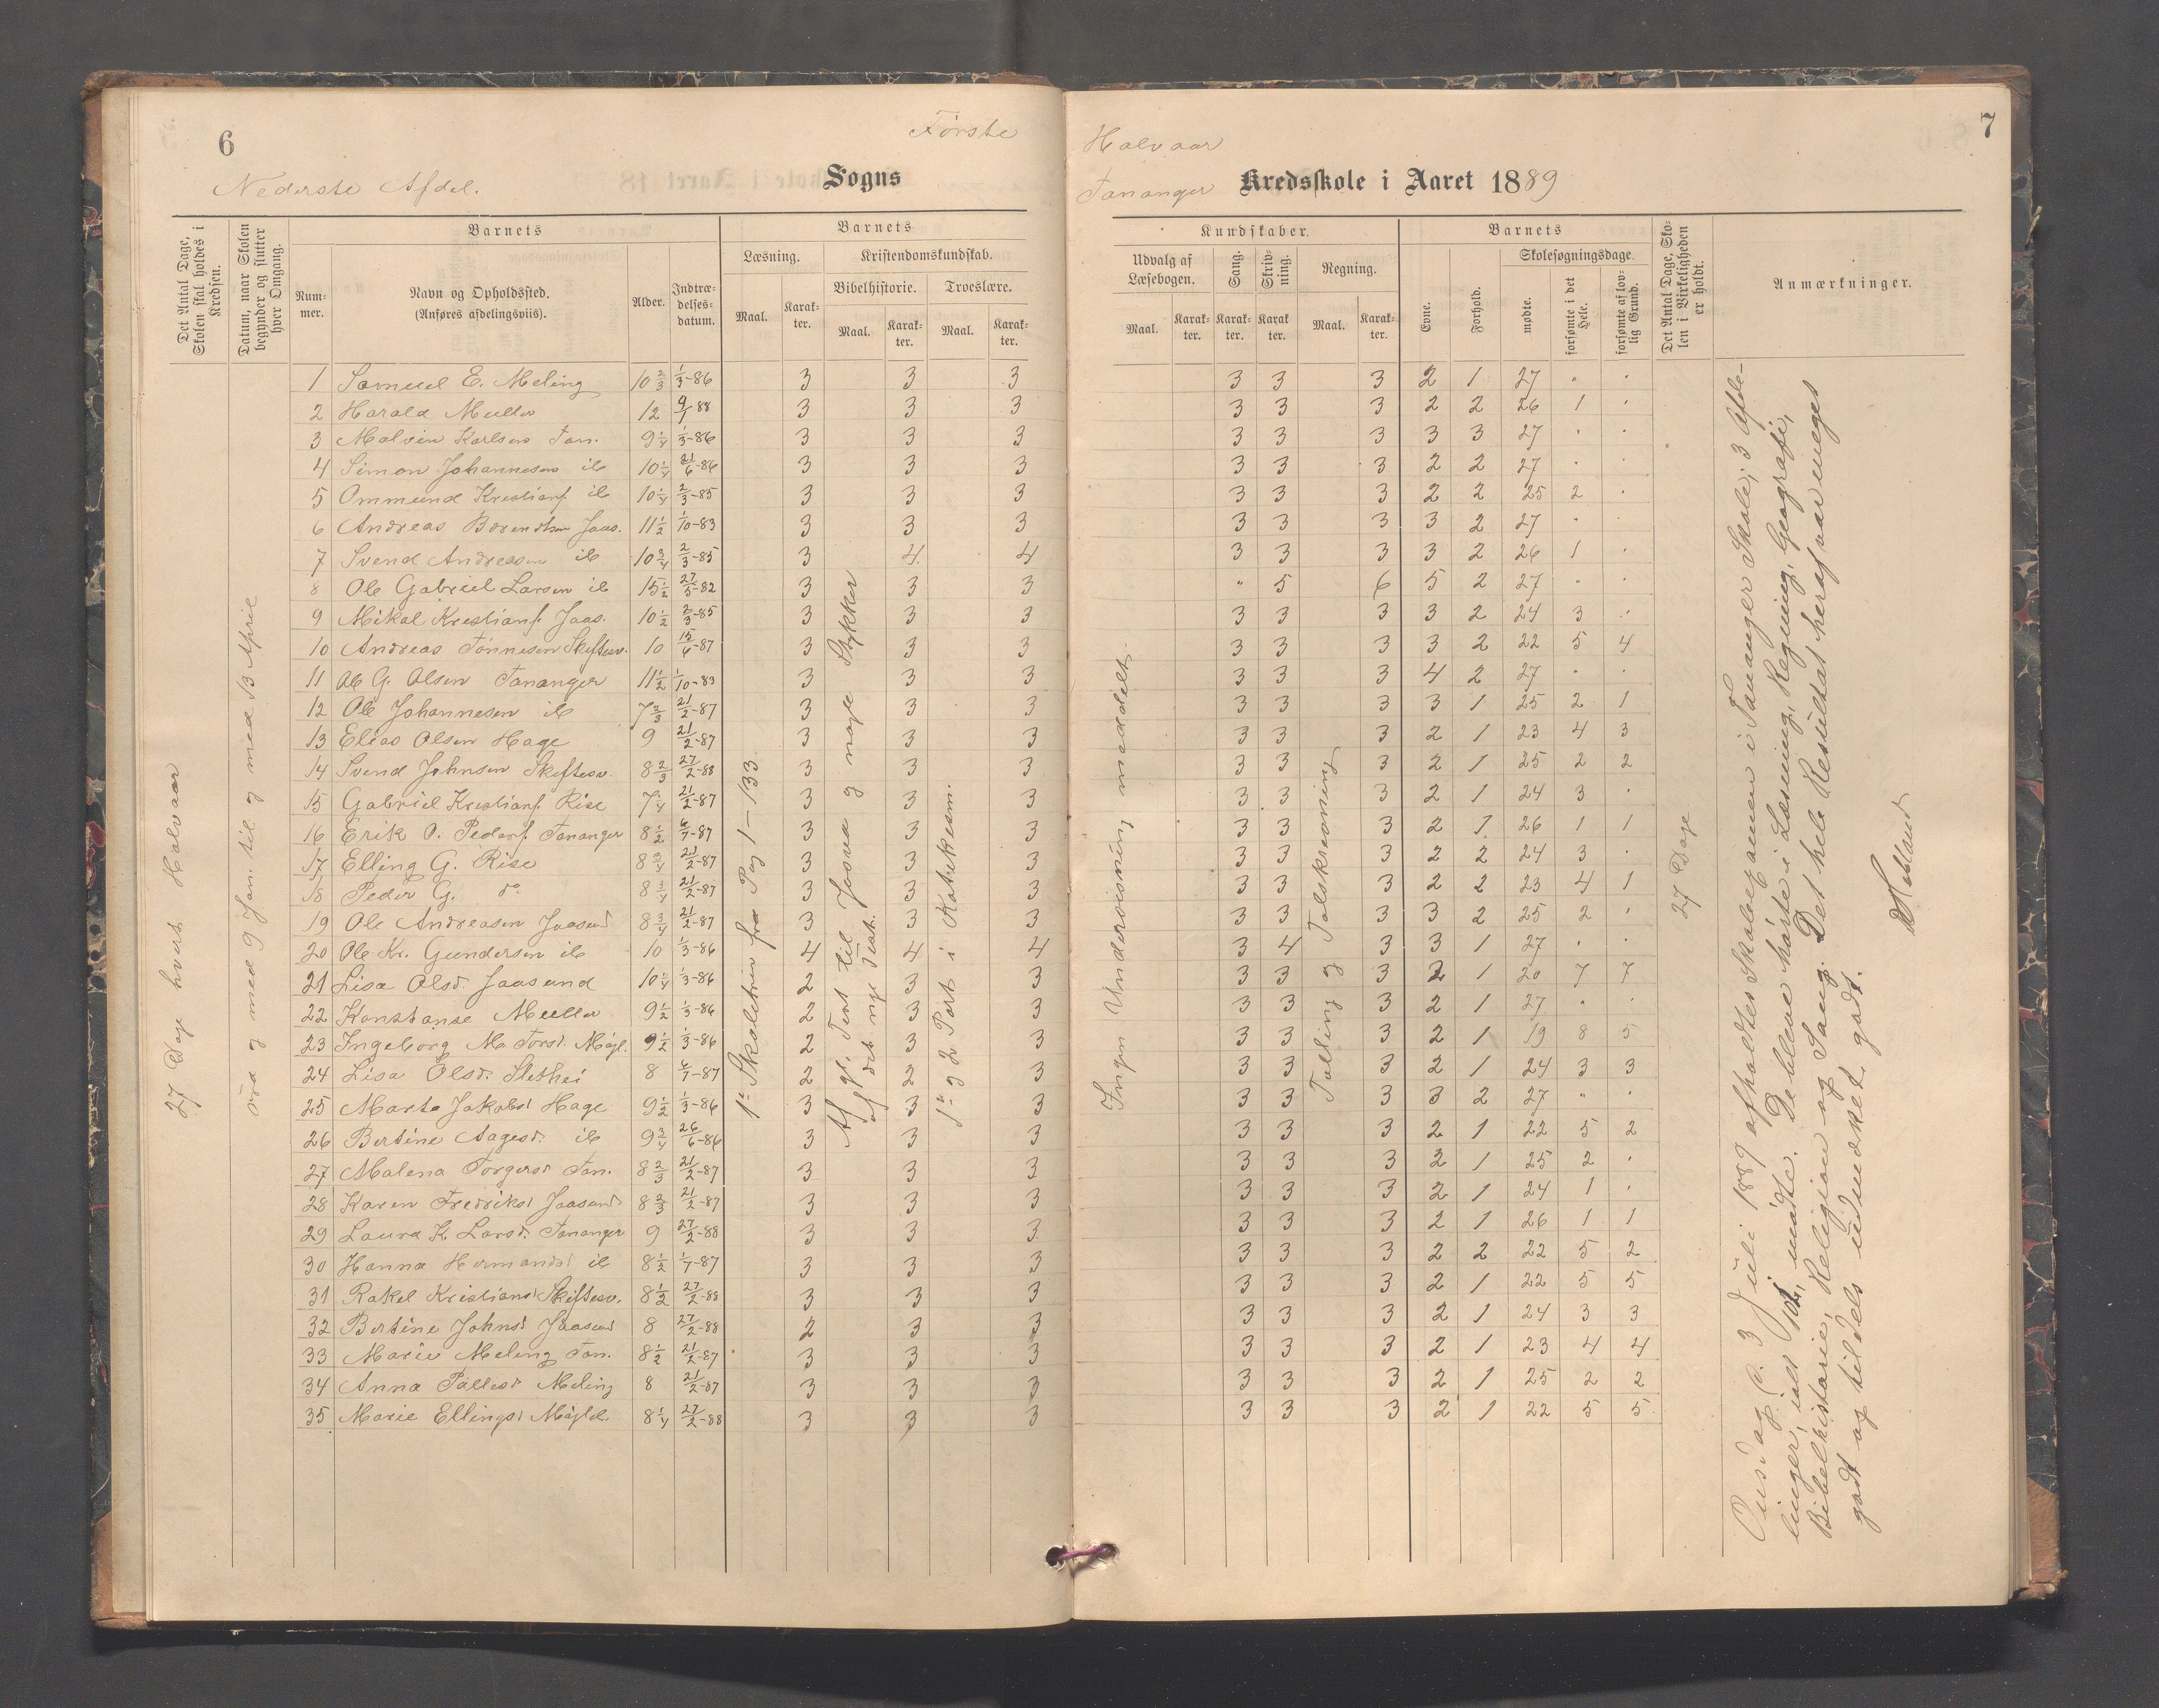 6
Første
Nederste Afdel.
Sogns
Det Antal Dage, Skolen skal holdes i Kredsen.
Datum, naar Skolen begynder og slutter hver Omgang.
Barnets
Barnets
Num-mer.
Navn og Opholdssted.
(Anføres afdelingsviis).
Alder.
Indtræ-delses-datum.
Læsning.
Kristendomskundskab.
Bibelhistorie.
Troeslære.
Maal.
Karak-ter.
Maal.
Karak-ter.
Maal.
Karak-ter.
27 Dage hvert Halvaar
fra og med 9 Jan. til og med 13 April
1 Samuel E. Meling 10 2/3 1/3-86 3 3 3
2 Harald Muller 12 9/1 88 3 3 3
3 Malvin Karlsen Tan. 9 1/4 1/3-86 3 3 3
4 Simon Johannesen ib 10 1/4 21/6-86 3 3 3
5 Ommund Kristians. ib 10 1/4 2/3-85 3 3 3
6 Andreas Berentsen Jaas. 11 1/2 1/10-83 3 3 3
7 Svend Andreasen ib 10 3/4 2/3-85 3 4 4
8 Ole Gabriel Larsen ib 15 1/2 27/5-82 3 3 3
9 Mikal Kristians. Jaas. 10 1/2 2/3-85 3 3 3
10 Andreas Tönnesen Skiftesv. 10 15/6-87 3 3 3
11 Ole G. Olsen Tananger 11 1/2 1/10-83 3 3 3
12 Ole Johannesen ib 7 2/3 21/2-87 3 3 3
13 Elias Olsen Hage 9 21/2-87 3 3 3
14 Svend Johnsen Skiftesv. 8 2/3 27/2-88 3 3 3
15 Gabriel Kristians. Rise 7 1/4 21/2-87 3 3 3
16 Erik O. Peders. Tananger 8 1/2 6/7-87 3 3 3
17 Elling G. Rise 8 3/4 21/2-87 3 3 3
18 Peder G. do 8 3/4 21/2-87 3 3 3
19 Ole Andreasen Jaasund 8 3/4 21/2-87 3 3 3
20 Ole Kr. Gundersen ib 10 1/3-86 4 4 4
21 Lisa Olsd. Jaasund 10 1/4 1/3-86 2 3 3
22 Konstanse Muller 9 1/2 1/3-86 2 3 3
23 Ingeborg M. Torsd. Mögl. 9 1/2 1/3-86 2 3 3
24 Lisa Olsd. Slethei 8 6/7-87 2 2 3
25 Marta Jakobsd Hage 9 1/2 1/3-86 3 3 3
26 Bertine Aagesd. ib 9 3/4 26/6-86 3 3 3
27 Malena Torgersd Tan. 8 2/3 21/2-87 3 3 3
28 Karen Fredriksd Jaasund 8 2/3 21/2-87 3 3 3
29 Laura K. Larsd. Tananger 9 27/2-88 3 3 3
30 Hanna Hermansd ib 8 1/2 1/7-87 3 3 3
31 Rakel Kristiansd Skiftesv. 8 1/2 27/2-88 3 3 3
32 Bertine Johnsd Jaasund 8 27/2-88 2 3 3
33 Marie Meling Tan. 8 1/2 21/2-87 3 3 3
34 Anna Pallesd Meling 8 21/2-87 3 3 3
35 Marie Ellingsd Mögl. 8 1/4 27/2-88 3 3 3
1ste Skoletrin fra Pag 1-133
Af gl. Test til Josva og nogle Stykker
af det nye Test.
1ste og 2 Part i Katekism.
7
Halvaar
Tananger
Kredsskole i Aaret 1889
Kundskaber.
Barnets
Udvalg af Læsebogen.
Sang.
Skriv-ning.
Regning.
Evne.
Forhold.
Skolesøgningsdage.
Det Antal Dage, Sko-len i Virkeligheden er holdt.
Anmærkninger.
Maal.
Karak-ter.
Karak-ter.
Karak ter.
Maal.
Karak-ter.
mødte.
forsømte i det Hele.
forsømte af lov-lig Grund.
3 3 3 2 1 27 " .
3 3 3 2 2 26 1 .
3 3 3 3 3 27 . .
3 3 3 2 2 27 . .
3 3 3 2 2 25 2 .
3 3 3 3 2 27 . .
3 3 3 3 2 26 1 .
" 5 6 5 2 27 " .
3 3 3 3 2 24 3 .
3 3 3 3 2 22 5 4
3 3 3 4 2 27 . .
3 3 3 3 1 25 2 1
3 3 3 2 1 23 4 3
3 3 3 2 1 25 2 2
3 3 3 2 1 24 3 .
3 3 3 2 1 26 1 1
3 3 3 2 2 24 3 .
3 3 3 2 2 23 4 1
3 3 3 3 2 25 2 .
3 4 3 3 1 27 " .
3 3 3 2 1 20 7 7
3 3 3 2 1 27 " .
3 3 3 2 1 19 8 5
3 3 3 2 1 24 3 3
3 3 3 3 2 27 " .
3 3 3 2 1 22 5 2
3 3 3 2 1 25 2 .
3 3 3 2 1 24 1 .
3 3 3 2 1 26 1 1
3 3 3 2 2 22 5 2
3 3 3 2 1 22 5 5
3 3 3 2 1 24 3 3
3 3 3 2 1 23 4 4
3 3 3 2 1 25 2 2
3 3 3 2 1 22 5 5
Ingen Undervisning meddelt.
Tælling og Talskrivning
27 Dage
Onsdag d. 3 Juli 1889 afholdtes Skoleexamen i Tananger Skole; 3 Afde-
linger, ialt mødte. De bleve hørte i Læsning, Regning, Geografi,
Bibelhistorie, Religion og Sang. Det hele Resultat heraf var meget
godt og tildels udmærket godt.